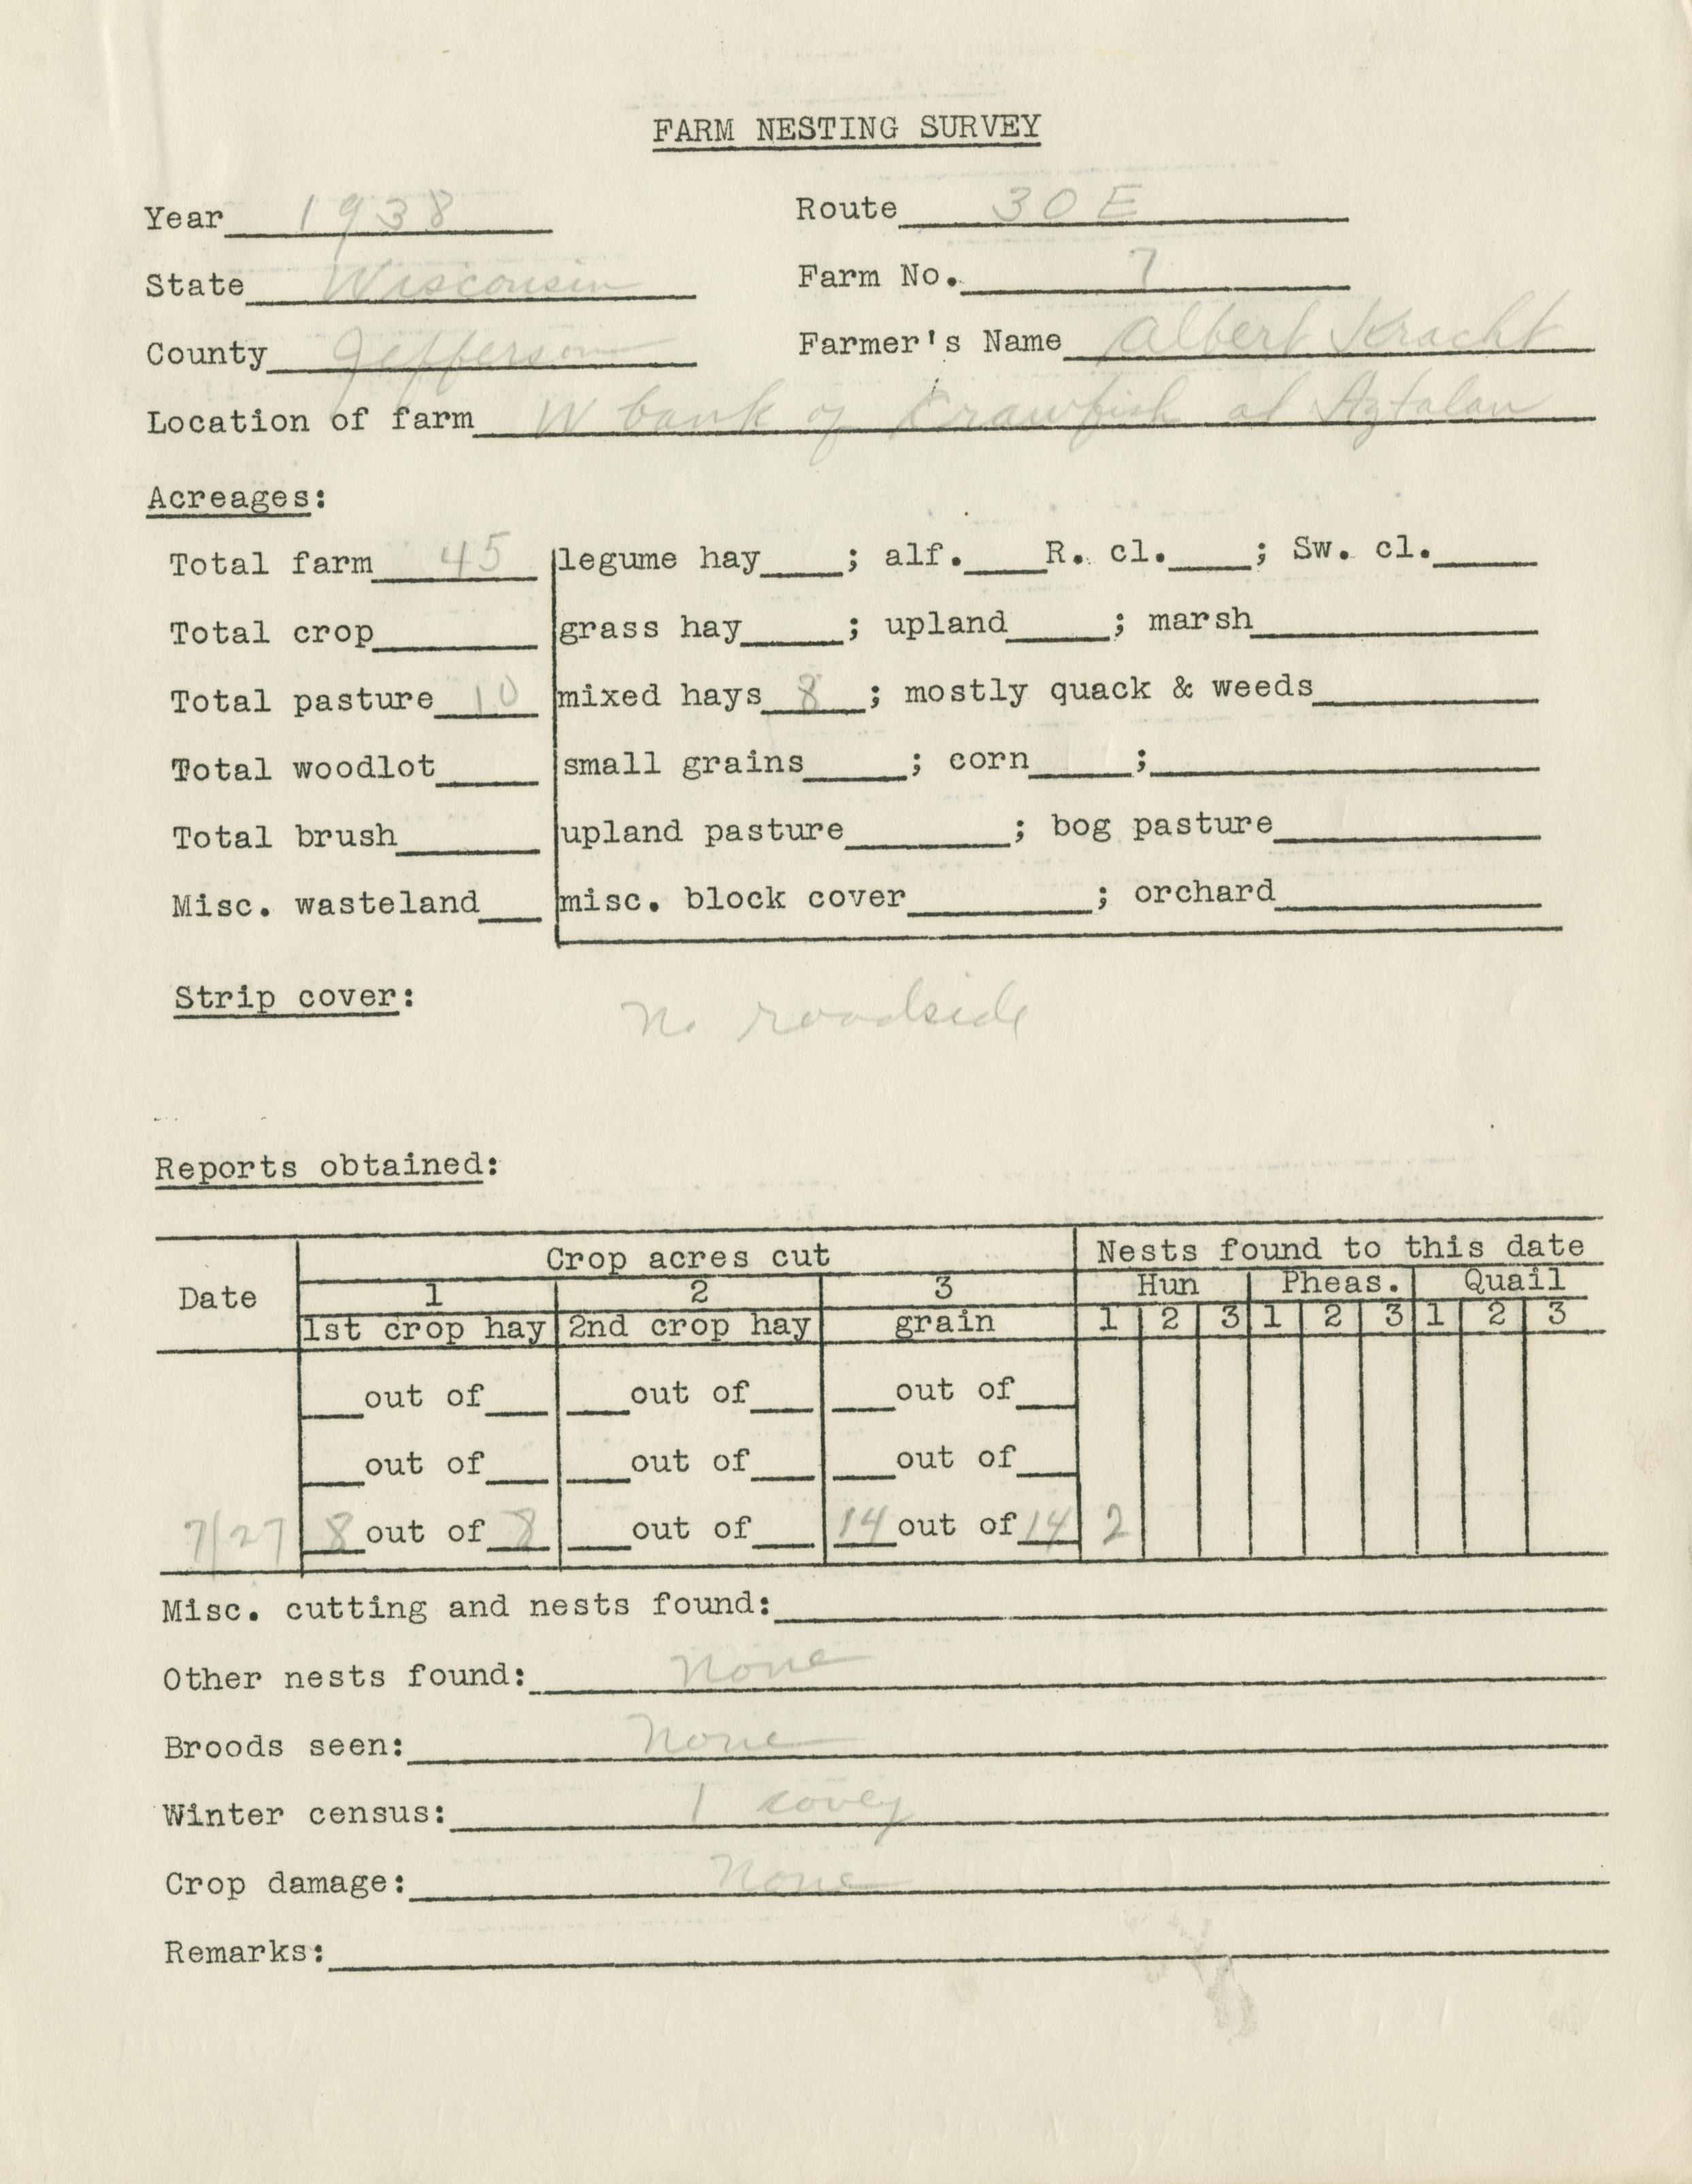 FARM NESTING SURVEY
Year 1938 Route 30 E
State Wisconsin Farm No. 7
County Jefferson Farmer's Name Albert Kracht
Location of farm W bank of Crawfish at Aztalan
Acreages:
Total farm 45 legume hay____; alf.____R. cl.____; Sw. cl._____
Total crop________ grass hay_____; upland_____; marsh______________
Total pasture 10 mixed hays 8 ; mostly quack & weeds___________
Total woodlot_____ small grains_____; corn_____;___________________
Total brush_______ upland pasture________; bog pasture_____________
Misc. wasteland___ misc. block cover_________; orchard_____________
Strip cover: No roadside
Reports obtained:
Date Crop acres cut Nests found to this date
1 2 3 Hun Pheas. Quail
1st crop hay 2nd crop hay grain 1 2 3 1 2 3 1 2 3
___out of___ ___out of___ ___out of___
___out of___ ___out of___ ___out of___
7/27 8 out of 8 ___out of___ 14 out of 14 2
Misc. cutting and nests found:
Other nests found: None
Broods seen: None
Winter census: 1 covey
Crop damage: None
Remarks: